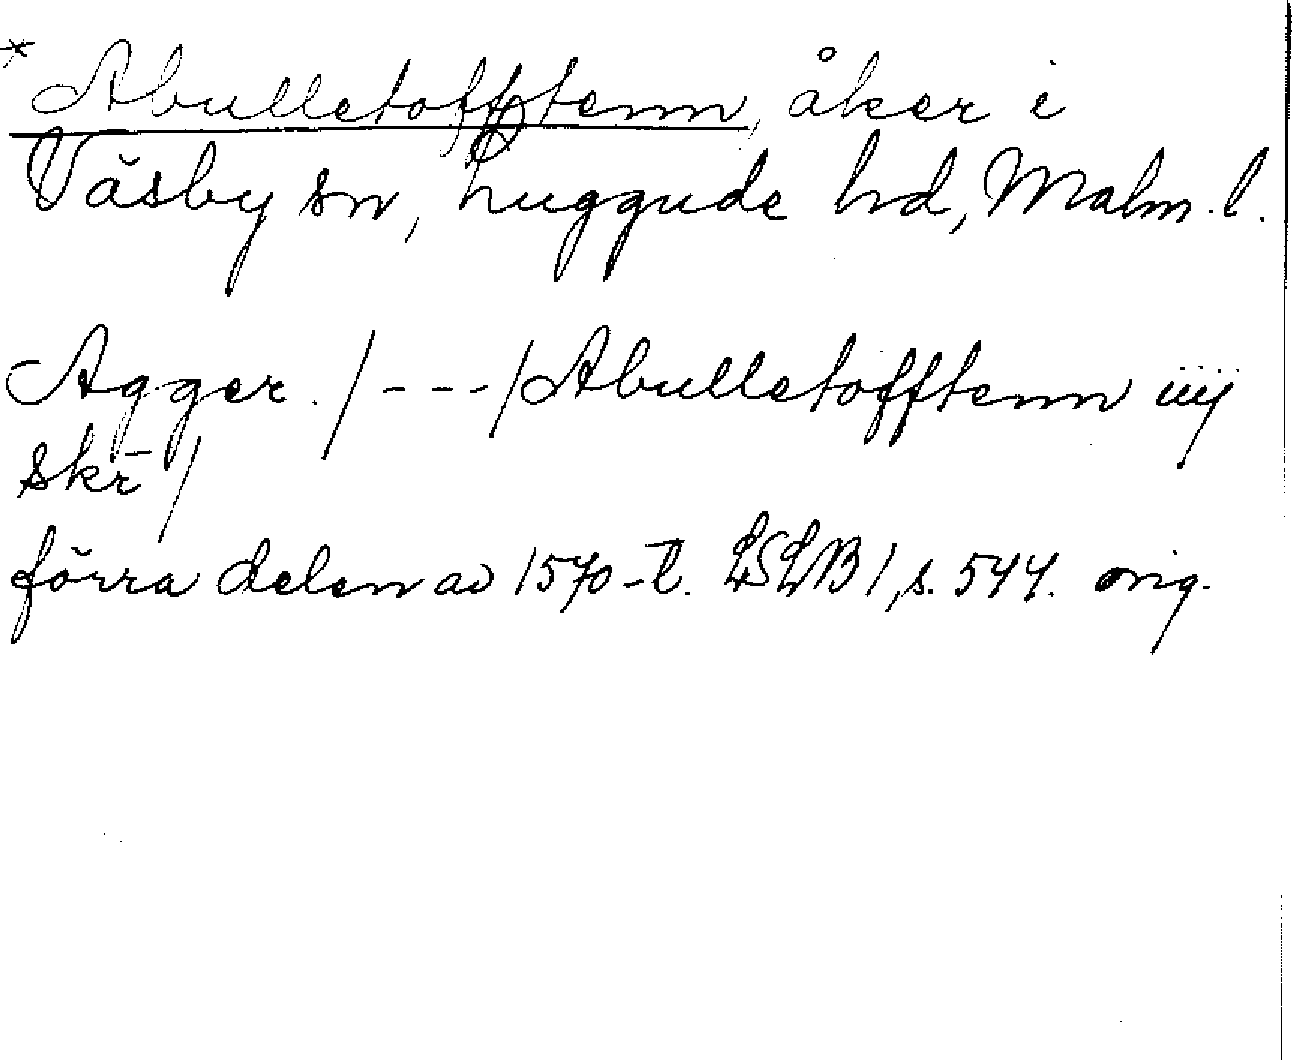 * Abulletofftenn, åker i
Väsby sn, Luggude hd, Malm. l.
Agger. / - - - / Abulletofftenn iiij
skr̄ /
förra delen av 1570-t. LSLB 1, s. 544. orig.